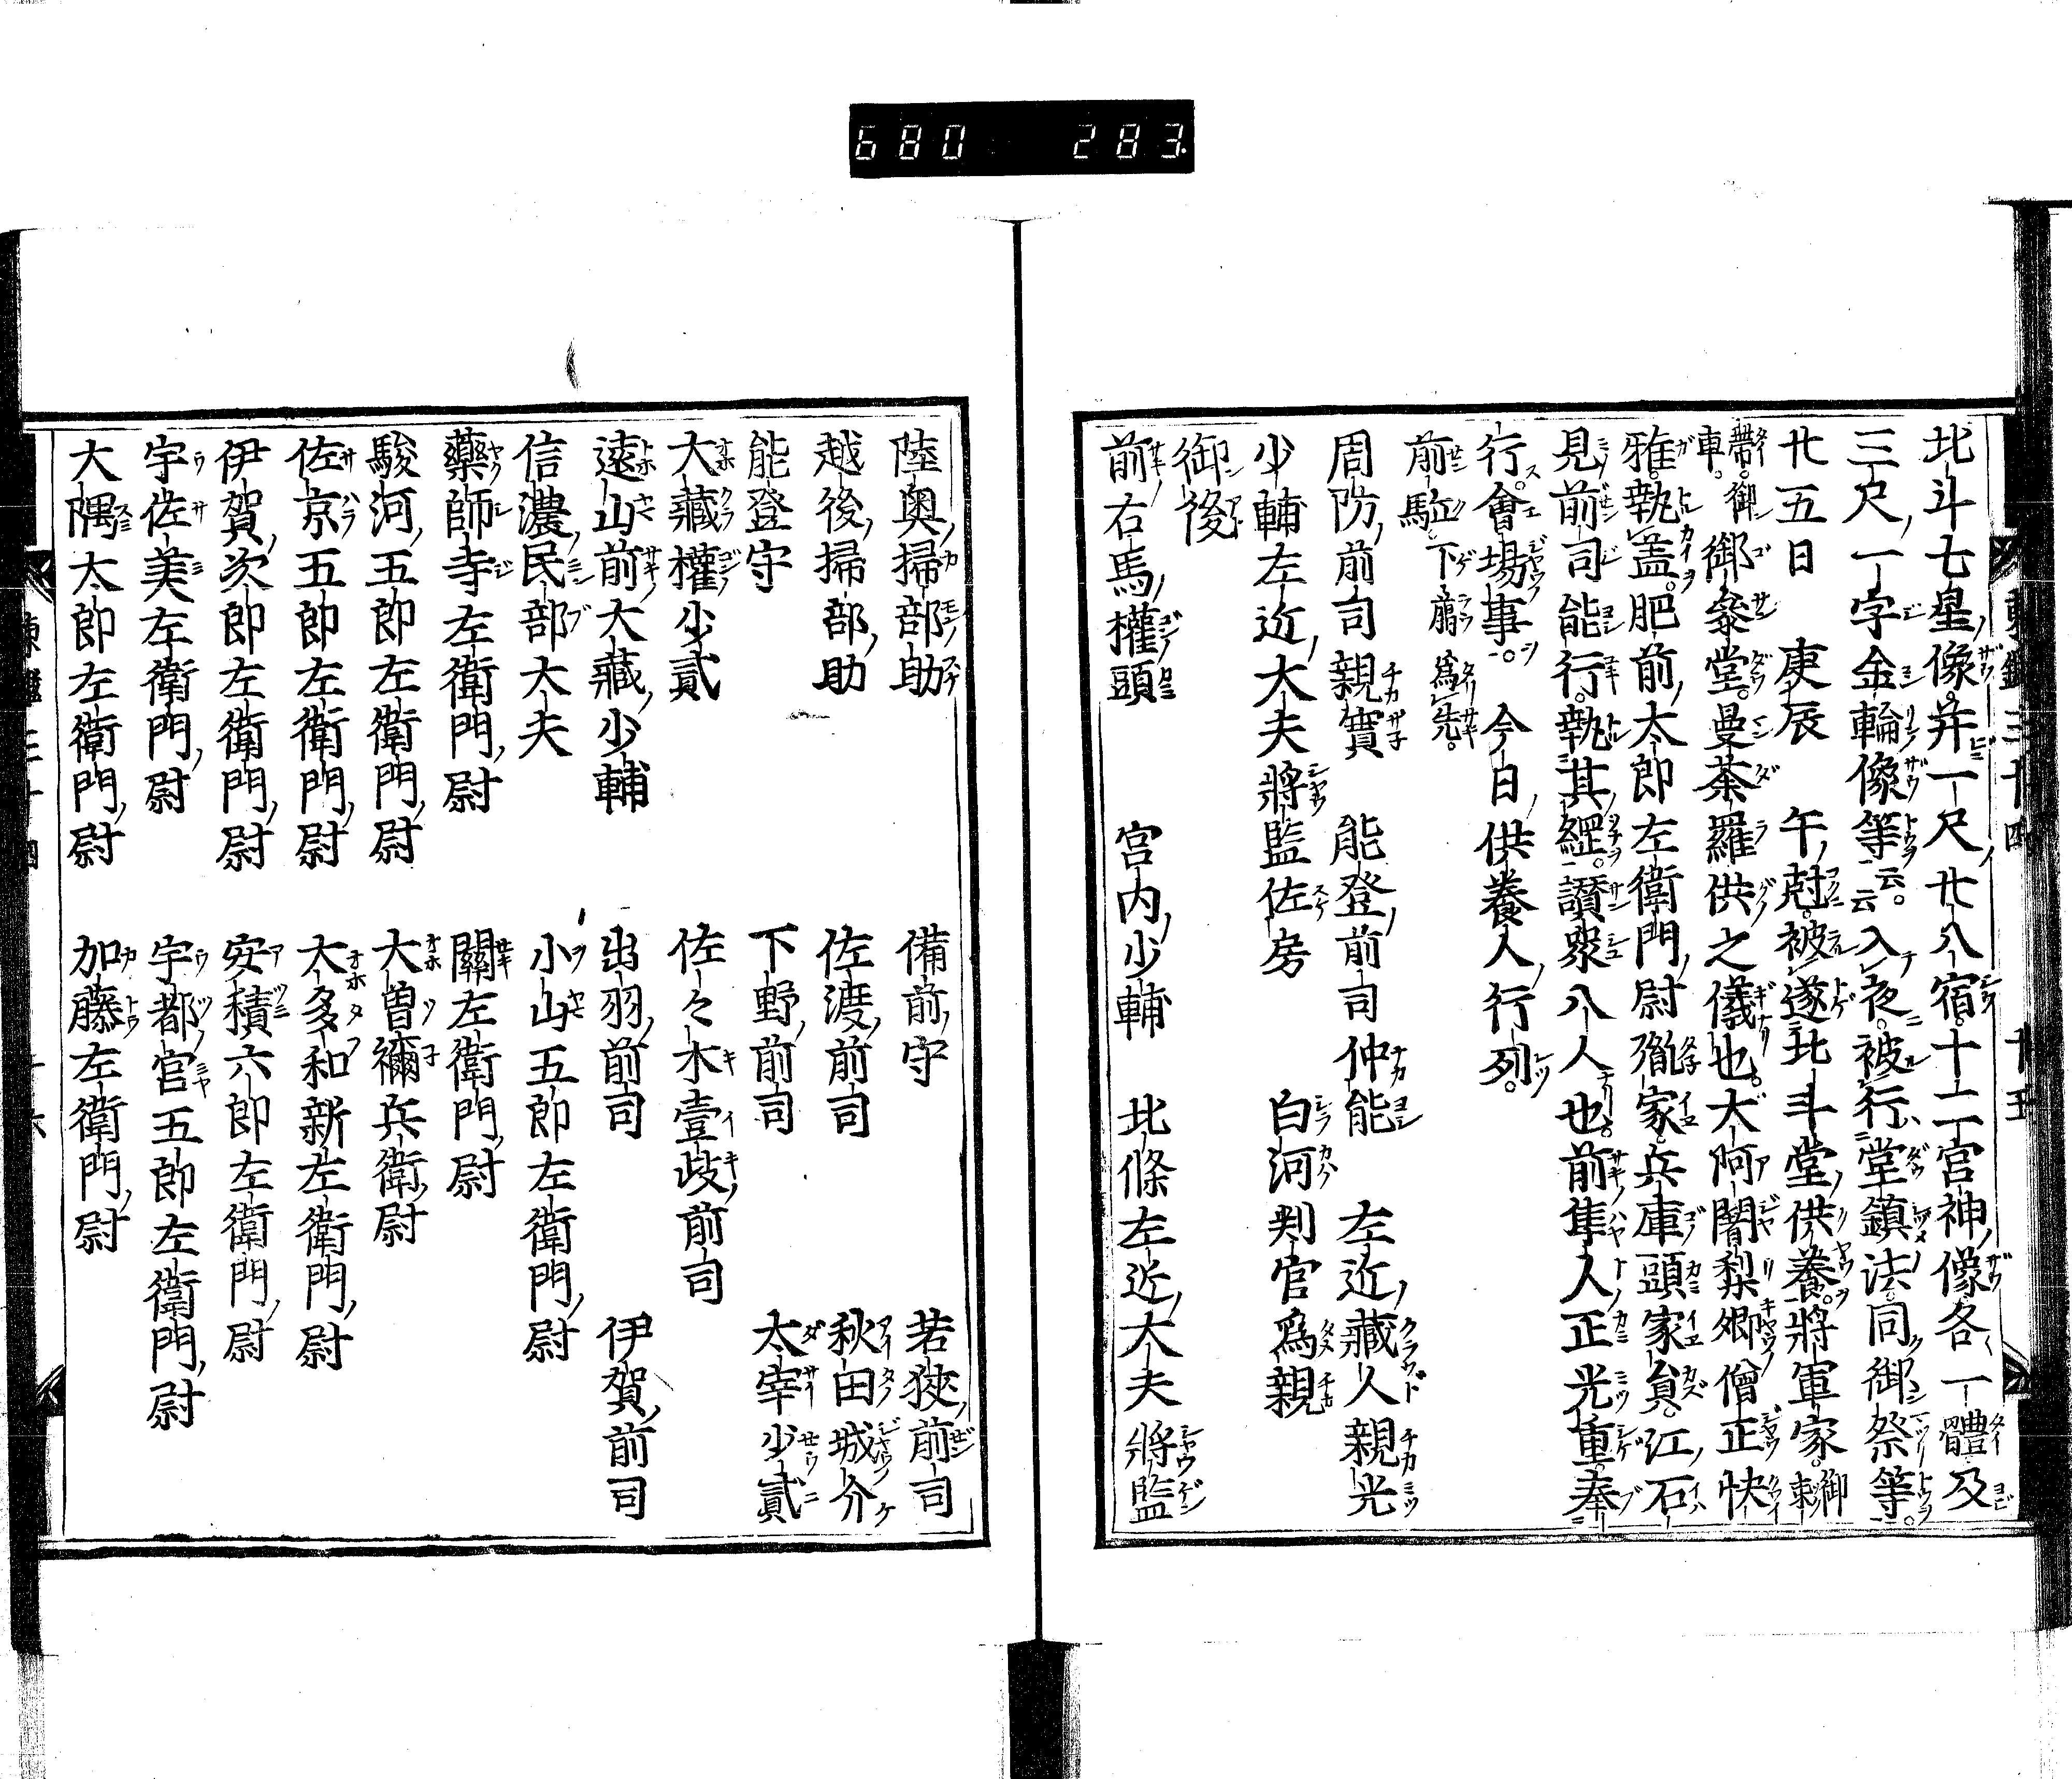 680 283
北斗七星像。并一尺廿八宿。十二宮神像各一體及
三尺一字金輪像等云云。入夜。被行堂鎮法。同御祭等。
廿五日 庚辰 午尅。被遂北斗堂供養。將軍家。御束
帶。御車。御參堂。曼荼羅供之儀也。大阿闍梨郷僧正快
雅。執盖。肥前太郎左衛門尉胤家。兵庫頭家員。江石
見前司能行。執其綱。讃衆八人也。前隼人正光重。奉
行會場事。今日供養人行列。
前駈。下﨟爲先。
周防前司親實 能登前司仲能 左近藏人親光
少輔左近大夫將監佐房 白河判官爲親
御後
前右馬權頭 宮内少輔 北條左近大夫將監
陸奥掃部助 備前守 若狹前司
越後掃部助 佐渡前司 秋田城介
能登守 下野前司 太宰少貳
大藏權少貳 佐々木壹岐前司
遠山前大藏少輔 出羽前司 伊賀前司
信濃民部大夫 小山五郎左衛門尉
藥師寺左衛門尉 關左衛門尉
駿河五郎左衛門尉 大曽禰兵衛尉
佐京五郎左衛門尉 大多和新左衛門尉
伊賀次郎左衛門尉 安積六郎左衛門尉
宇佐美左衛門尉 宇都宮五郎左衛門尉
大隅太郎左衛門尉 加藤左衛門尉